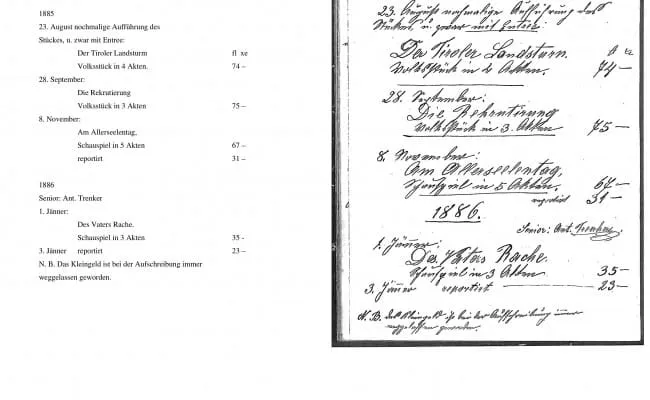 1885
23. August nochmalige Aufführung des
Stückes, u. zwar mit Entree:
Der Tiroler Landsturm fl xe
Volksstück in 4 Akten. 74 –
28. September:
Die Rekrutierung
Volksstück in 3 Akten 75–
8. November:
Am Allerseelentag,
Schauspiel in 5 Akten 67 –
reportirt 31 –
1886
Senior: Ant. Trenker
1. Jänner:
Des Vaters Rache.
Schauspiel in 3 Akten 35 -
3. Jänner reportirt 23 –
N. B. Das Kleingeld ist bei der Aufschreibung immer
weggelassen geworden.
23. August nochmalige Aufführung des
Stückes, u. zwar mit Entree:
Der Tiroler Landsturm.
Volksstück in 4 Akten. 74 –
28. September:
Die Rekrutirung
Volksstück in 3 Akten 75 –
8. November:
Am Allerseelentag,
Schauspiel in 5 Akten. 67 –
reportirt 31 –
1886.
Senior: Ant. Trenker
1. Jänner:
Des Vaters Rache.
Schauspiel in 3 Akten 35 –
3. Jänner reportirt 23 –
N. B. das Kleingeld ist bei der Aufschreibung immer
weggelassen geworden.